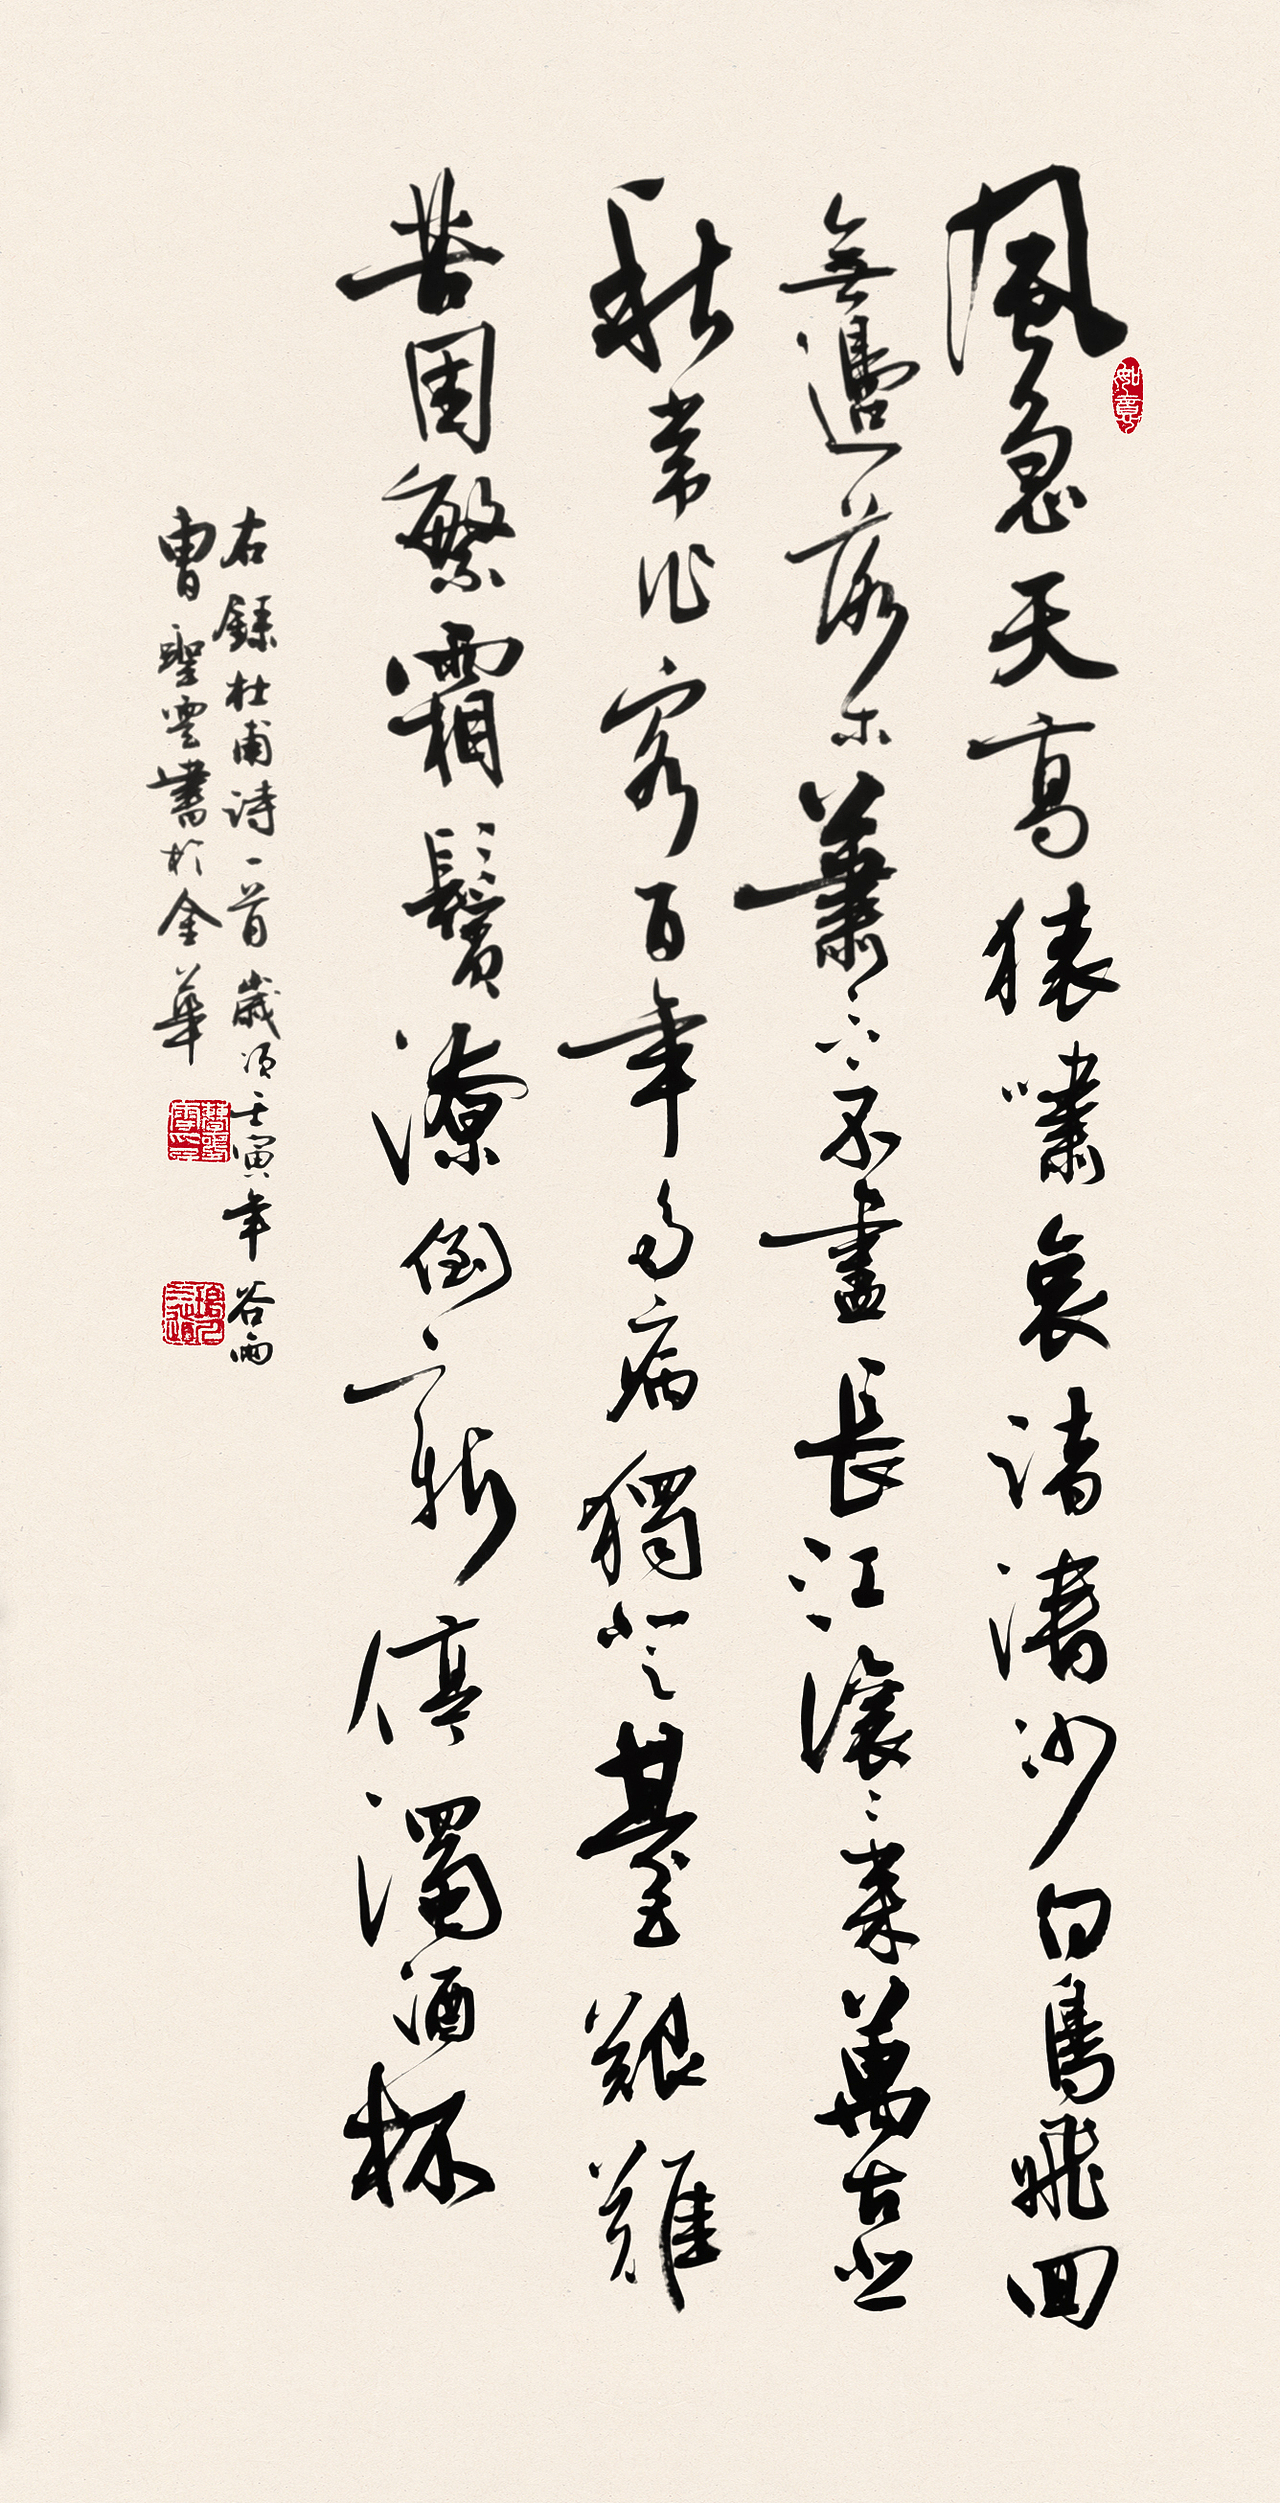 如意
風急天高猿嘯哀清渚沙白鳥飛回
無邊落木蕭〻下不盡長江滾〻來萬里悲
秋常作客百年多病獨登臺艱難
苦困繁霜鬢潦倒新停濁酒杯
右錄杜甫詩一首歲次壬寅年谷雨
曹聖雲書於金華
曹聖雲印